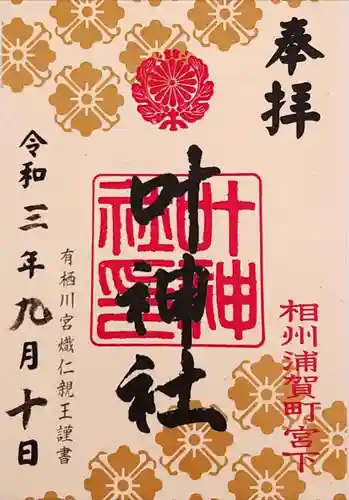 奉拝
相州浦賀町宮下
叶神社
叶神社印
有栖川宮熾仁親王謹書
令和三年九月十日